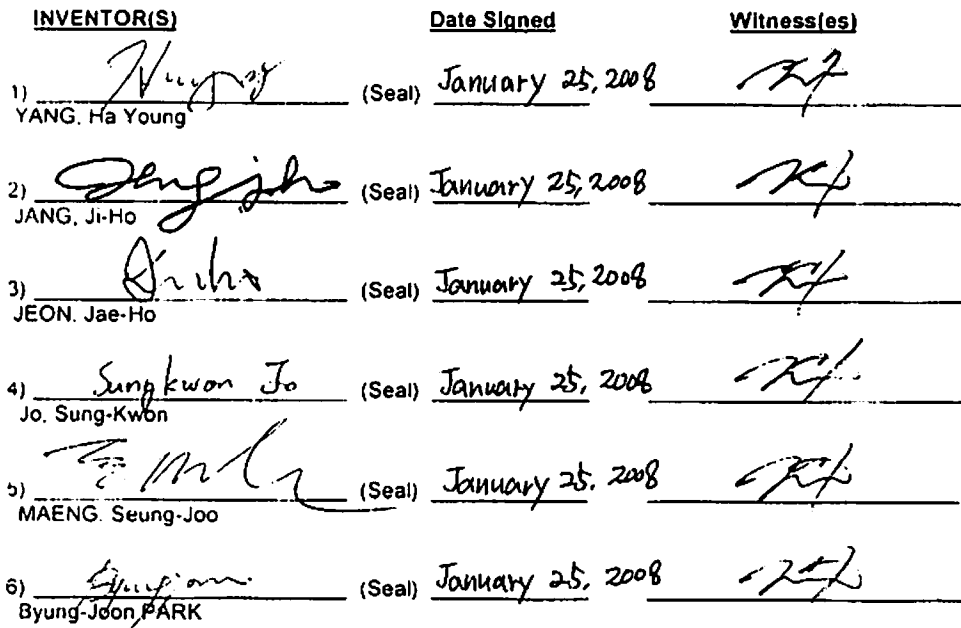 INVENTOR(S) Date Signed Witness(es)
1) (Seal) January 25, 2008
YANG, Ha Young
2) (Seal) January 25, 2008
JANG, Ji-Ho
3) (Seal) January 25, 2008
JEON, Jae-Ho
4) Sungkwon Jo (Seal) January 25, 2008
Jo, Sung-Kwon
5) (Seal) January 25, 2008
MAENG, Seung-Joo
6) (Seal) January 25, 2008
Byung-Joon PARK